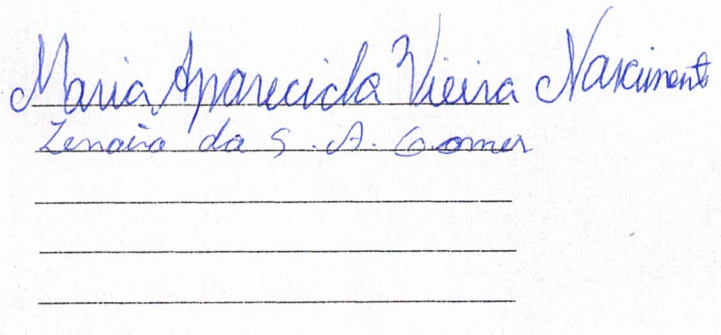 Maria Aparecida Vieira Nascimento
Zenaia da S. A. Gomes